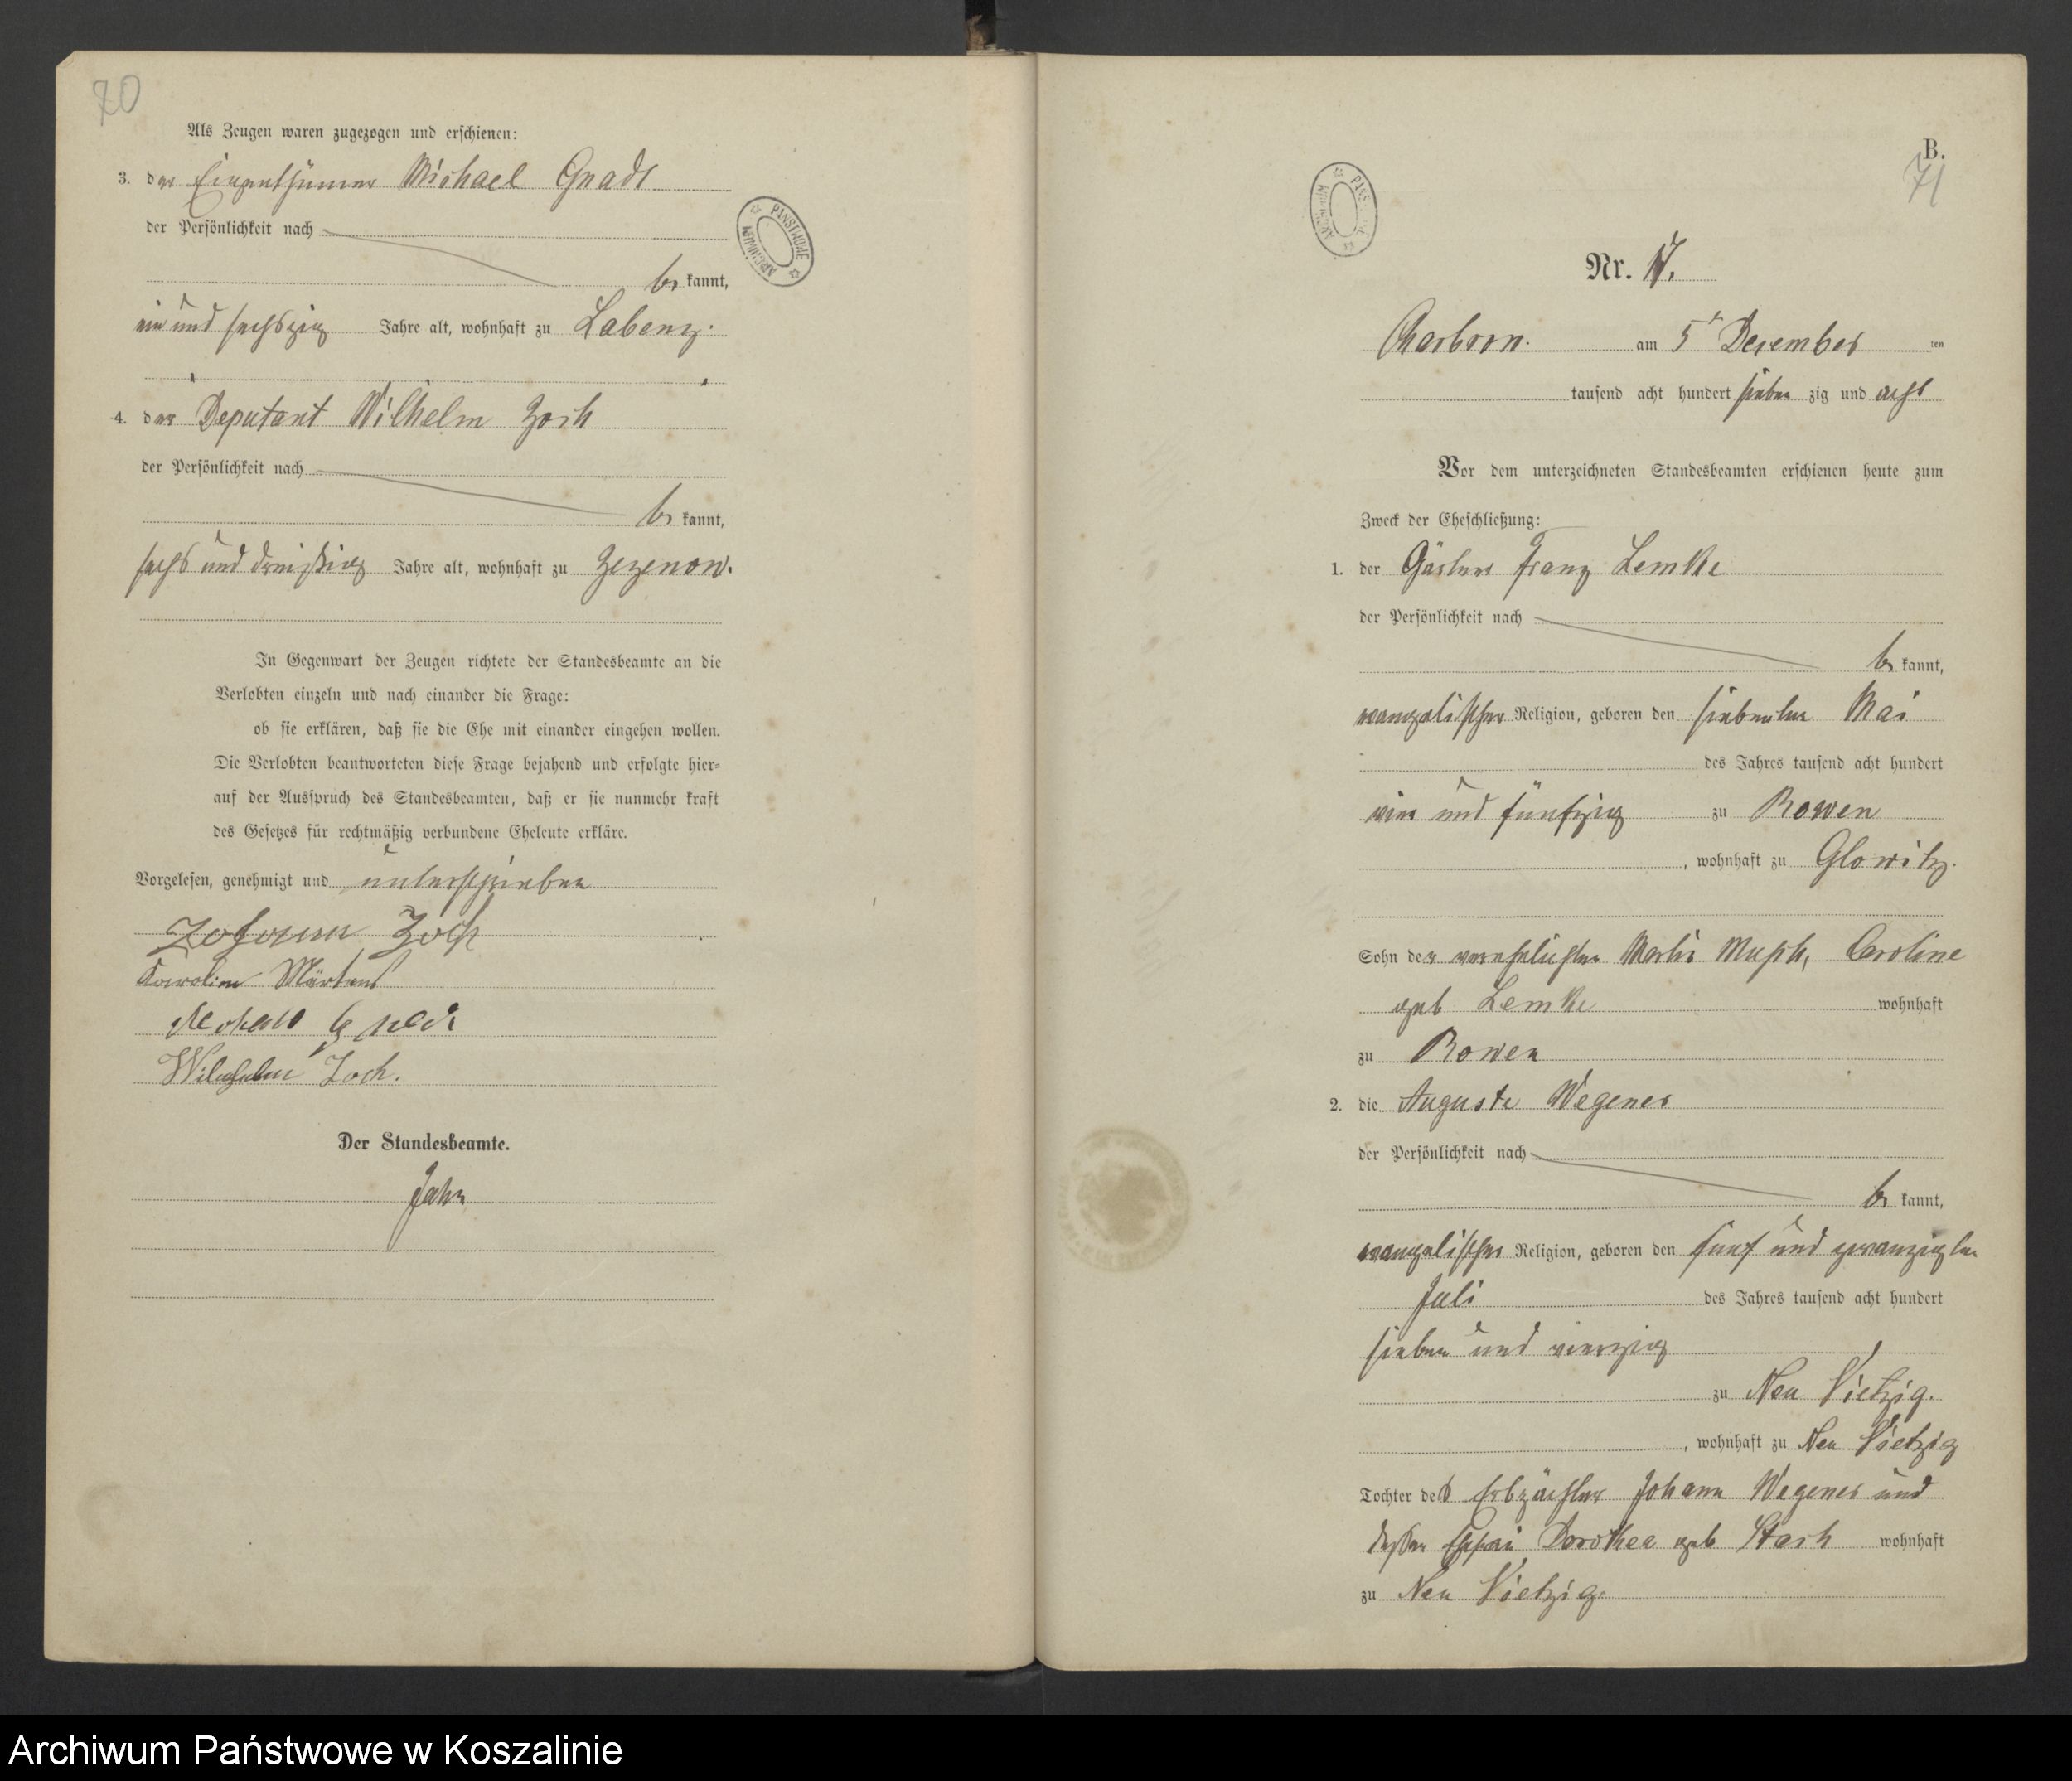 70
Als Zeugen waren zugezogen und erschienen:
3. der Eigenthümer Michael Gnadt
der Persönlichkeit nach
be kannt,
ein und sechszig Jahre alt, wohnhaft zu Labenz.
4. der Deputant Wilhelm Zoch
der Persönlichkeit nach
be kannt,
sechs und dreißig Jahre alt, wohnhaft zu Zezenow.
In Gegenwart der Zeugen richtete der Standesbeamte an die
Verlobten einzeln und nach einander die Frage:
ob sie erklären, daß sie die Ehe mit einander eingehen wollen.
Die Verlobten beantworteten diese Frage bejahend und erfolgte hier-
auf der Ausspruch des Standesbeamten, daß er sie nunmehr kraft
des Gesetzes für rechtmäßig verbundene Eheleute erkläre.
Vorgelesen, genehmigt und unterschrieben
Johann Zoch
Karoline Märtens
Gnadt
Wilhelm Zoch.
Der Standesbeamte.
Jahn
ARCHIWUM PAŃSTWOWE
B.
71
Nr. 17.
Charbrow. am 5t December ten
tausend acht hundert sieben zig und acht
Vor dem unterzeichneten Standesbeamten erschienen heute zum
Zweck der Eheschließung:
1. der Gärtner Franz Lemke
der Persönlichkeit nach
be kannt,
evangelischer Religion, geboren den siebenten Mai
des Jahres tausend acht hundert
vier und fünfzig zu Rowen
, wohnhaft zu Glowitz.
Sohn der verehelichten Caroline
geb Lemke wohnhaft
zu Rowen
2. die Auguste Wegener
der Persönlichkeit nach
be kannt,
evangelischer Religion, geboren den fünf und zwanzigsten
Juli des Jahres tausend acht hundert
sieben und vierzig
zu Neu Vietzig.
, wohnhaft zu Neu Vietzig
Tochter des Erbpächter Johann Wegener und
dessen Ehefrau Dorothea geb Stach wohnhaft
zu Neu Vietzig.
Archiwum Państwowe w Koszalinie